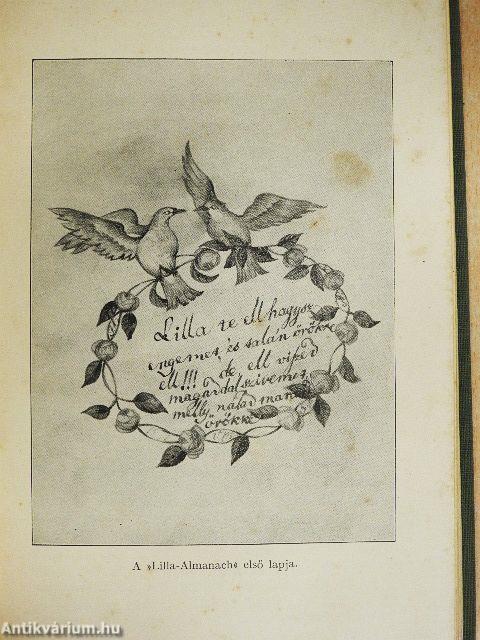 Lilla te ell hagysz
engemet, és talán örökké
ell!!! de, ell viszed
magaddal szivemet,
melly nálad marad
örökké
A »Lilla-Almanach« első lapja.
Antikvárium.hu